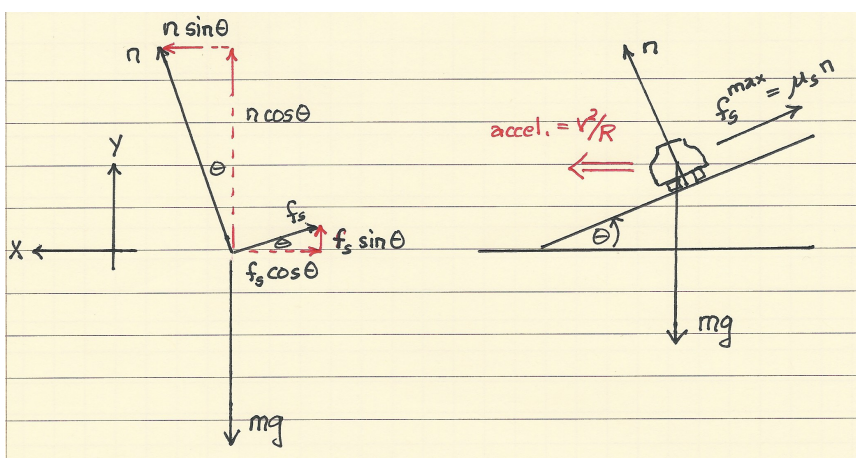 n sinθ
n
n cosθ
θ
Y
X
f_s
θ
f_s sinθ
f_s cosθ
mg
n
f_s^max = μ_s n
accel. = v²/R
θ
mg